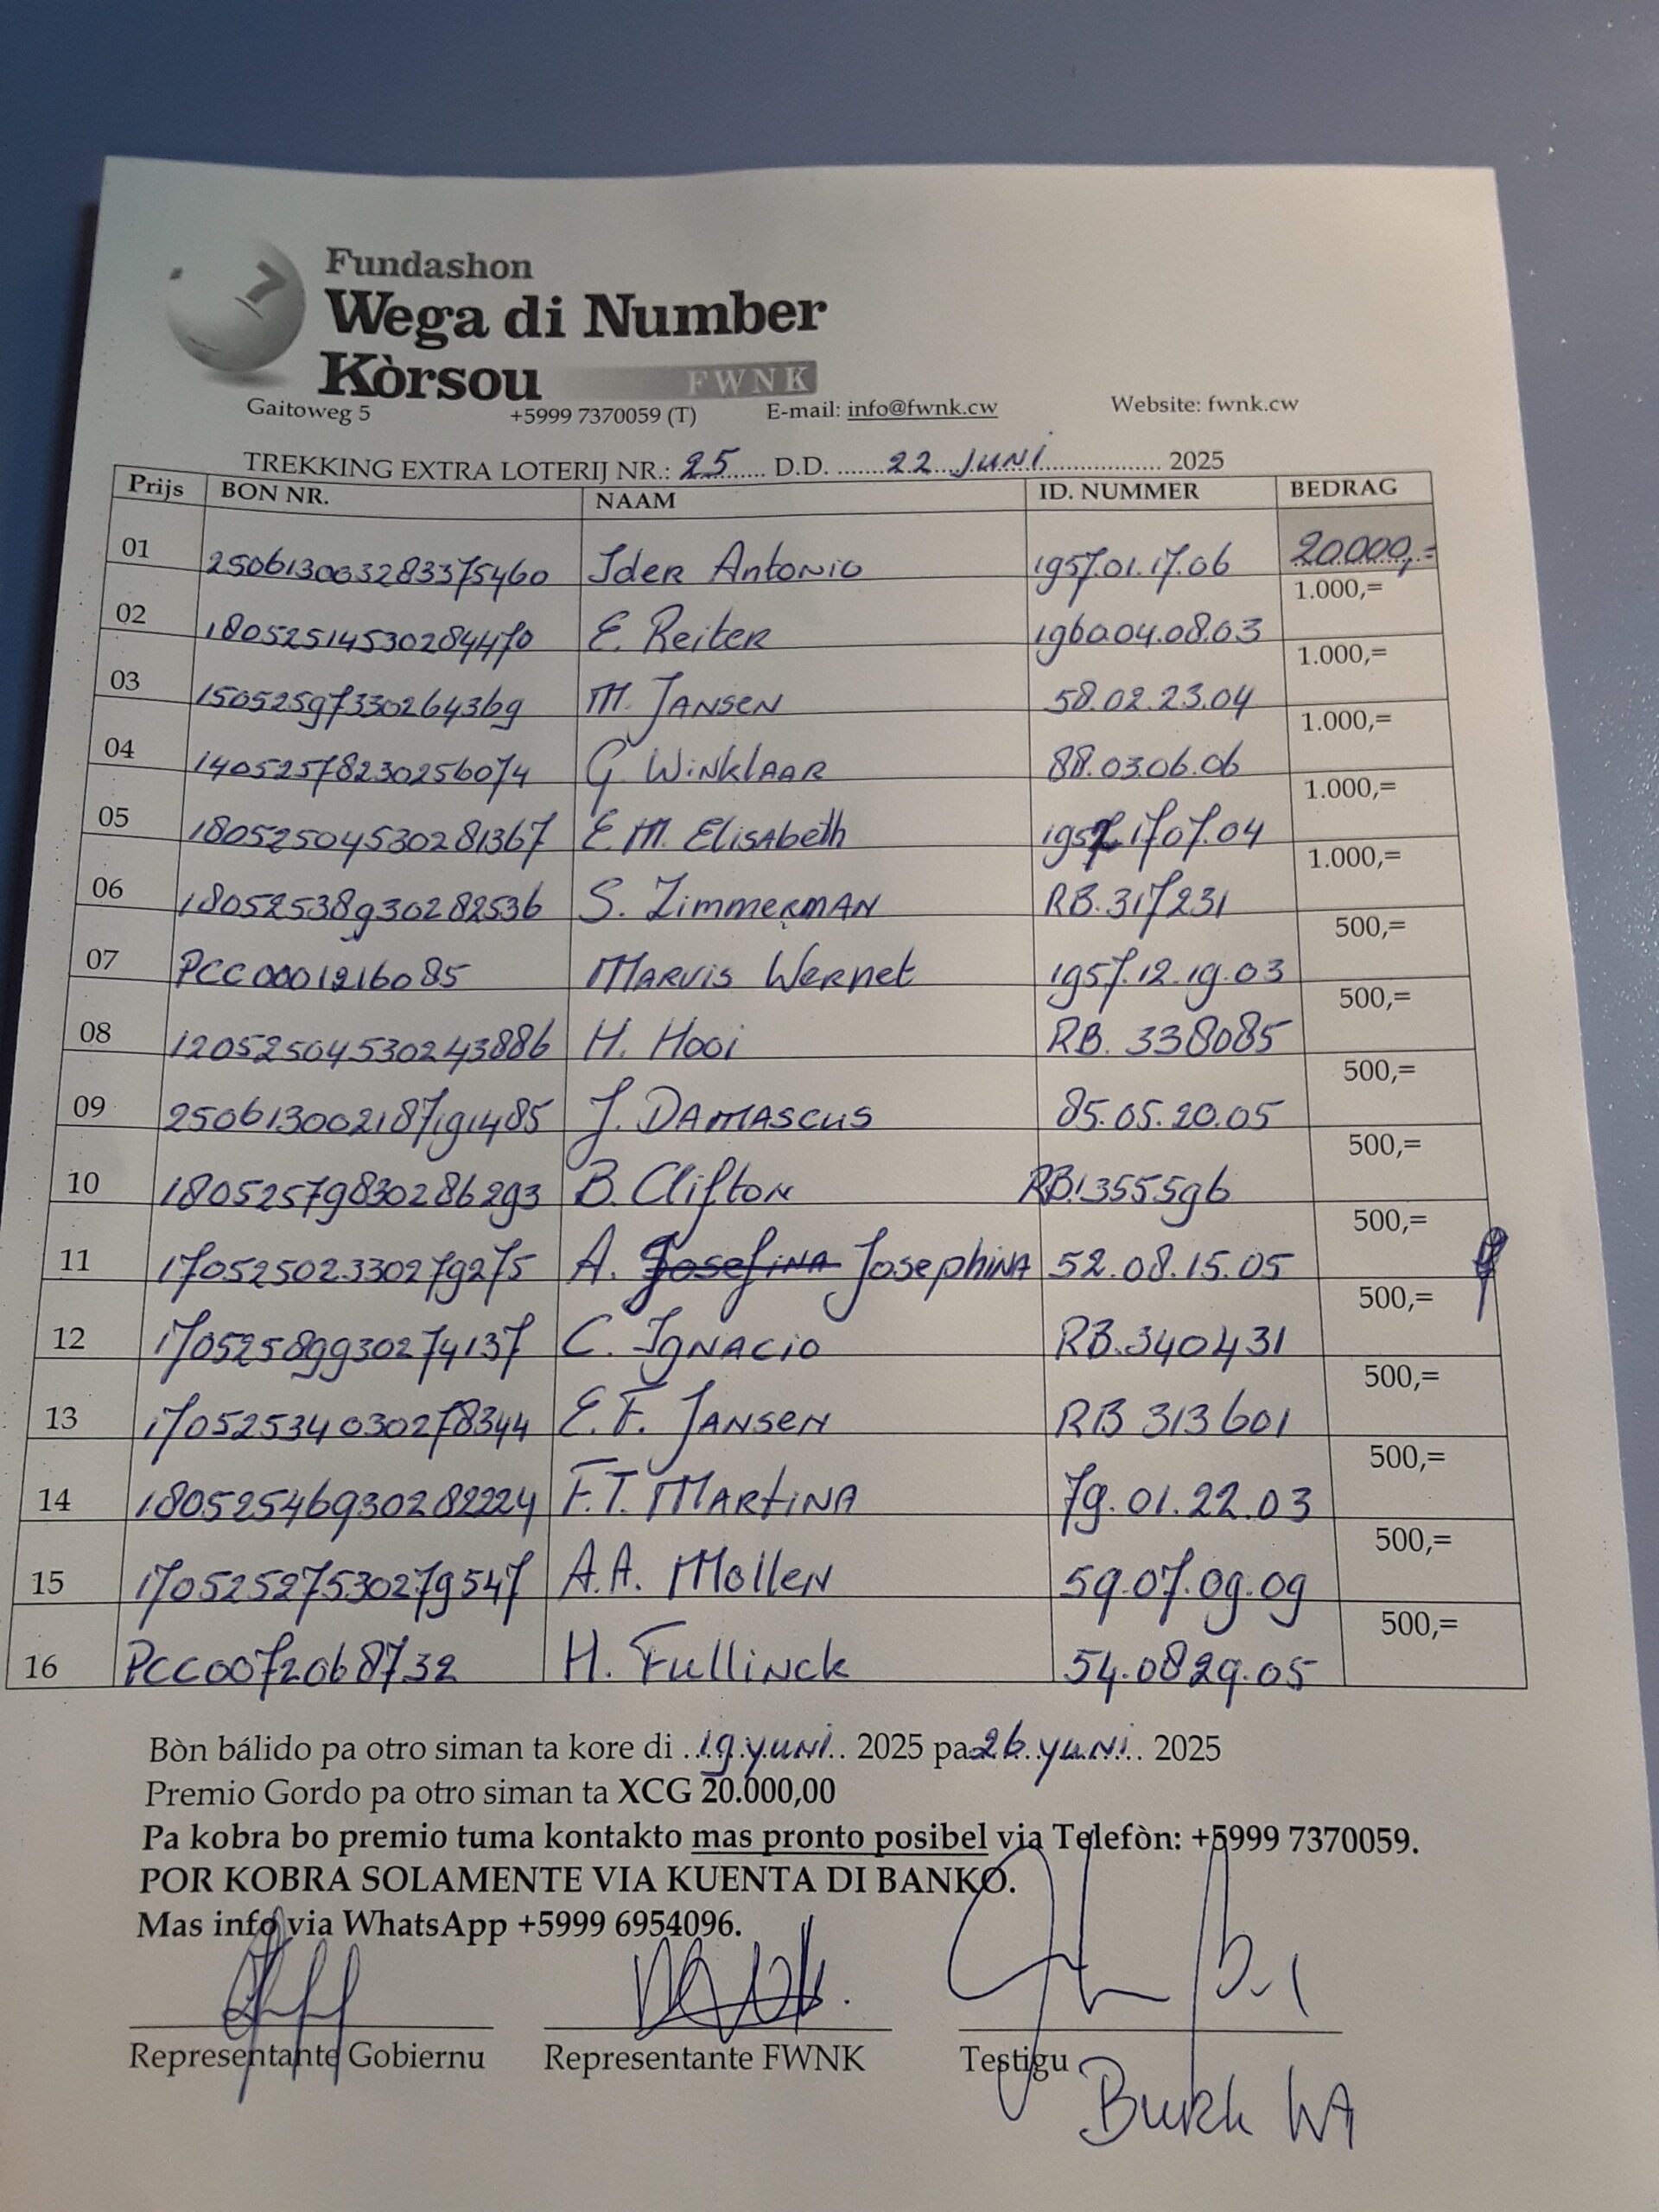 Fundashon
Wega di Number
Kòrsou FWNK
Gaitoweg 5 +5999 7370059 (T) E-mail: info@fwnk.cw Website: fwnk.cw
TREKKING EXTRA LOTERIJ NR.: 25 D.D. 22 JUNI 2025
Prijs BON NR. NAAM ID. NUMMER BEDRAG
01 250613003283375460 Ider Antonio 1957.01.17.06 20.000,=
02 18052514530284470 E. Reiter 1960.04.08.03 1.000,=
03 15052597330264369 M. JANSEN 58.02.23.04 1.000,=
04 14052578230256074 G. WINKlAAR 88.03.06.06 1.000,=
05 18052504530281367 E.M. Elisabeth 17.07.04 1.000,=
06 18052538930282536 S. Zimmerman RB.317231 1.000,=
07 PCC0001216085 MARVIS WERNET 1957.12.19.03 500,=
08 12052504530243886 H. Hooi RB. 338085 500,=
09 250613002187191485 J. DAMASCUS 85.05.20.05 500,=
10 18052579830286293 B. Clifton RB.355596 500,=
11 17052502330279275 A. Josefina Josephina 52.08.15.05 500,=
12 17052589930274137 C. IGNACIO RB.340431 500,=
13 17052534030278344 E.F. JANSEN RB 313601 500,=
14 18052546930282224 F.T. MARTINA 79.01.22.03 500,=
15 17052527530279547 A.A. Mollen 59.07.09.09 500,=
16 PCC0072068732 H. Fullinck 54.0829.05 500,=
Bòn bálido pa otro siman ta kore di 19 yuni 2025 pa 26 yuni 2025
Premio Gordo pa otro siman ta XCG 20.000,00
Pa kobra bo premio tuma kontakto mas pronto posibel via Telefòn: +5999 7370059.
POR KOBRA SOLAMENTE VIA KUENTA DI BANKO.
Mas info via WhatsApp +5999 6954096.
Representante Gobiernu Representante FWNK Testigu